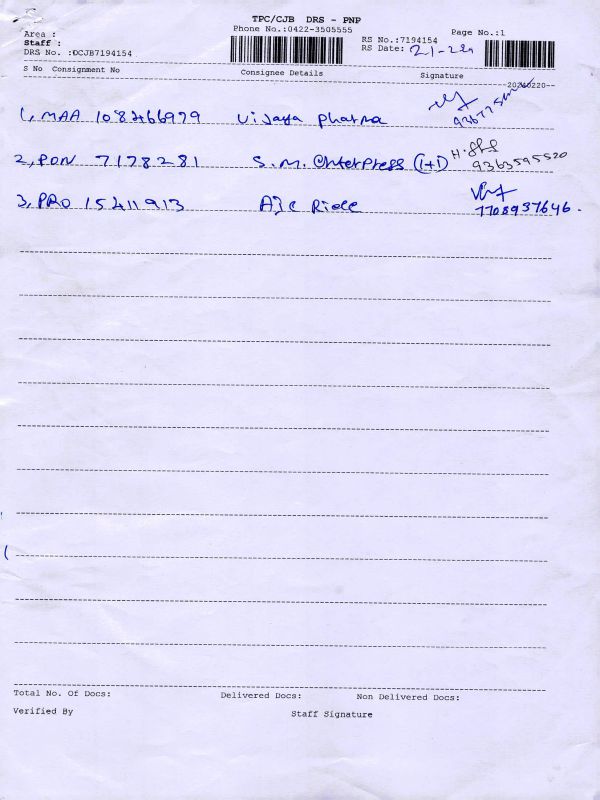 TPC/CJB DRS - PNP
Area : Phone No.:0422-3505555 Page No.:1
Staff : RS No.:7194154
DRS No. :DCJB7194154 RS Date: 21-2-24
S No Consignment No Consignee Details Signature
20240220--
1, MAA 108466979 Vijaya pharma
2, PON 7178281 S.M. Enterpress (1+1) 9363595520
3, PRO 15411913 AJC Riele 7708937646.
Total No. Of Docs: Delivered Docs: Non Delivered Docs:
Verified By Staff Signature